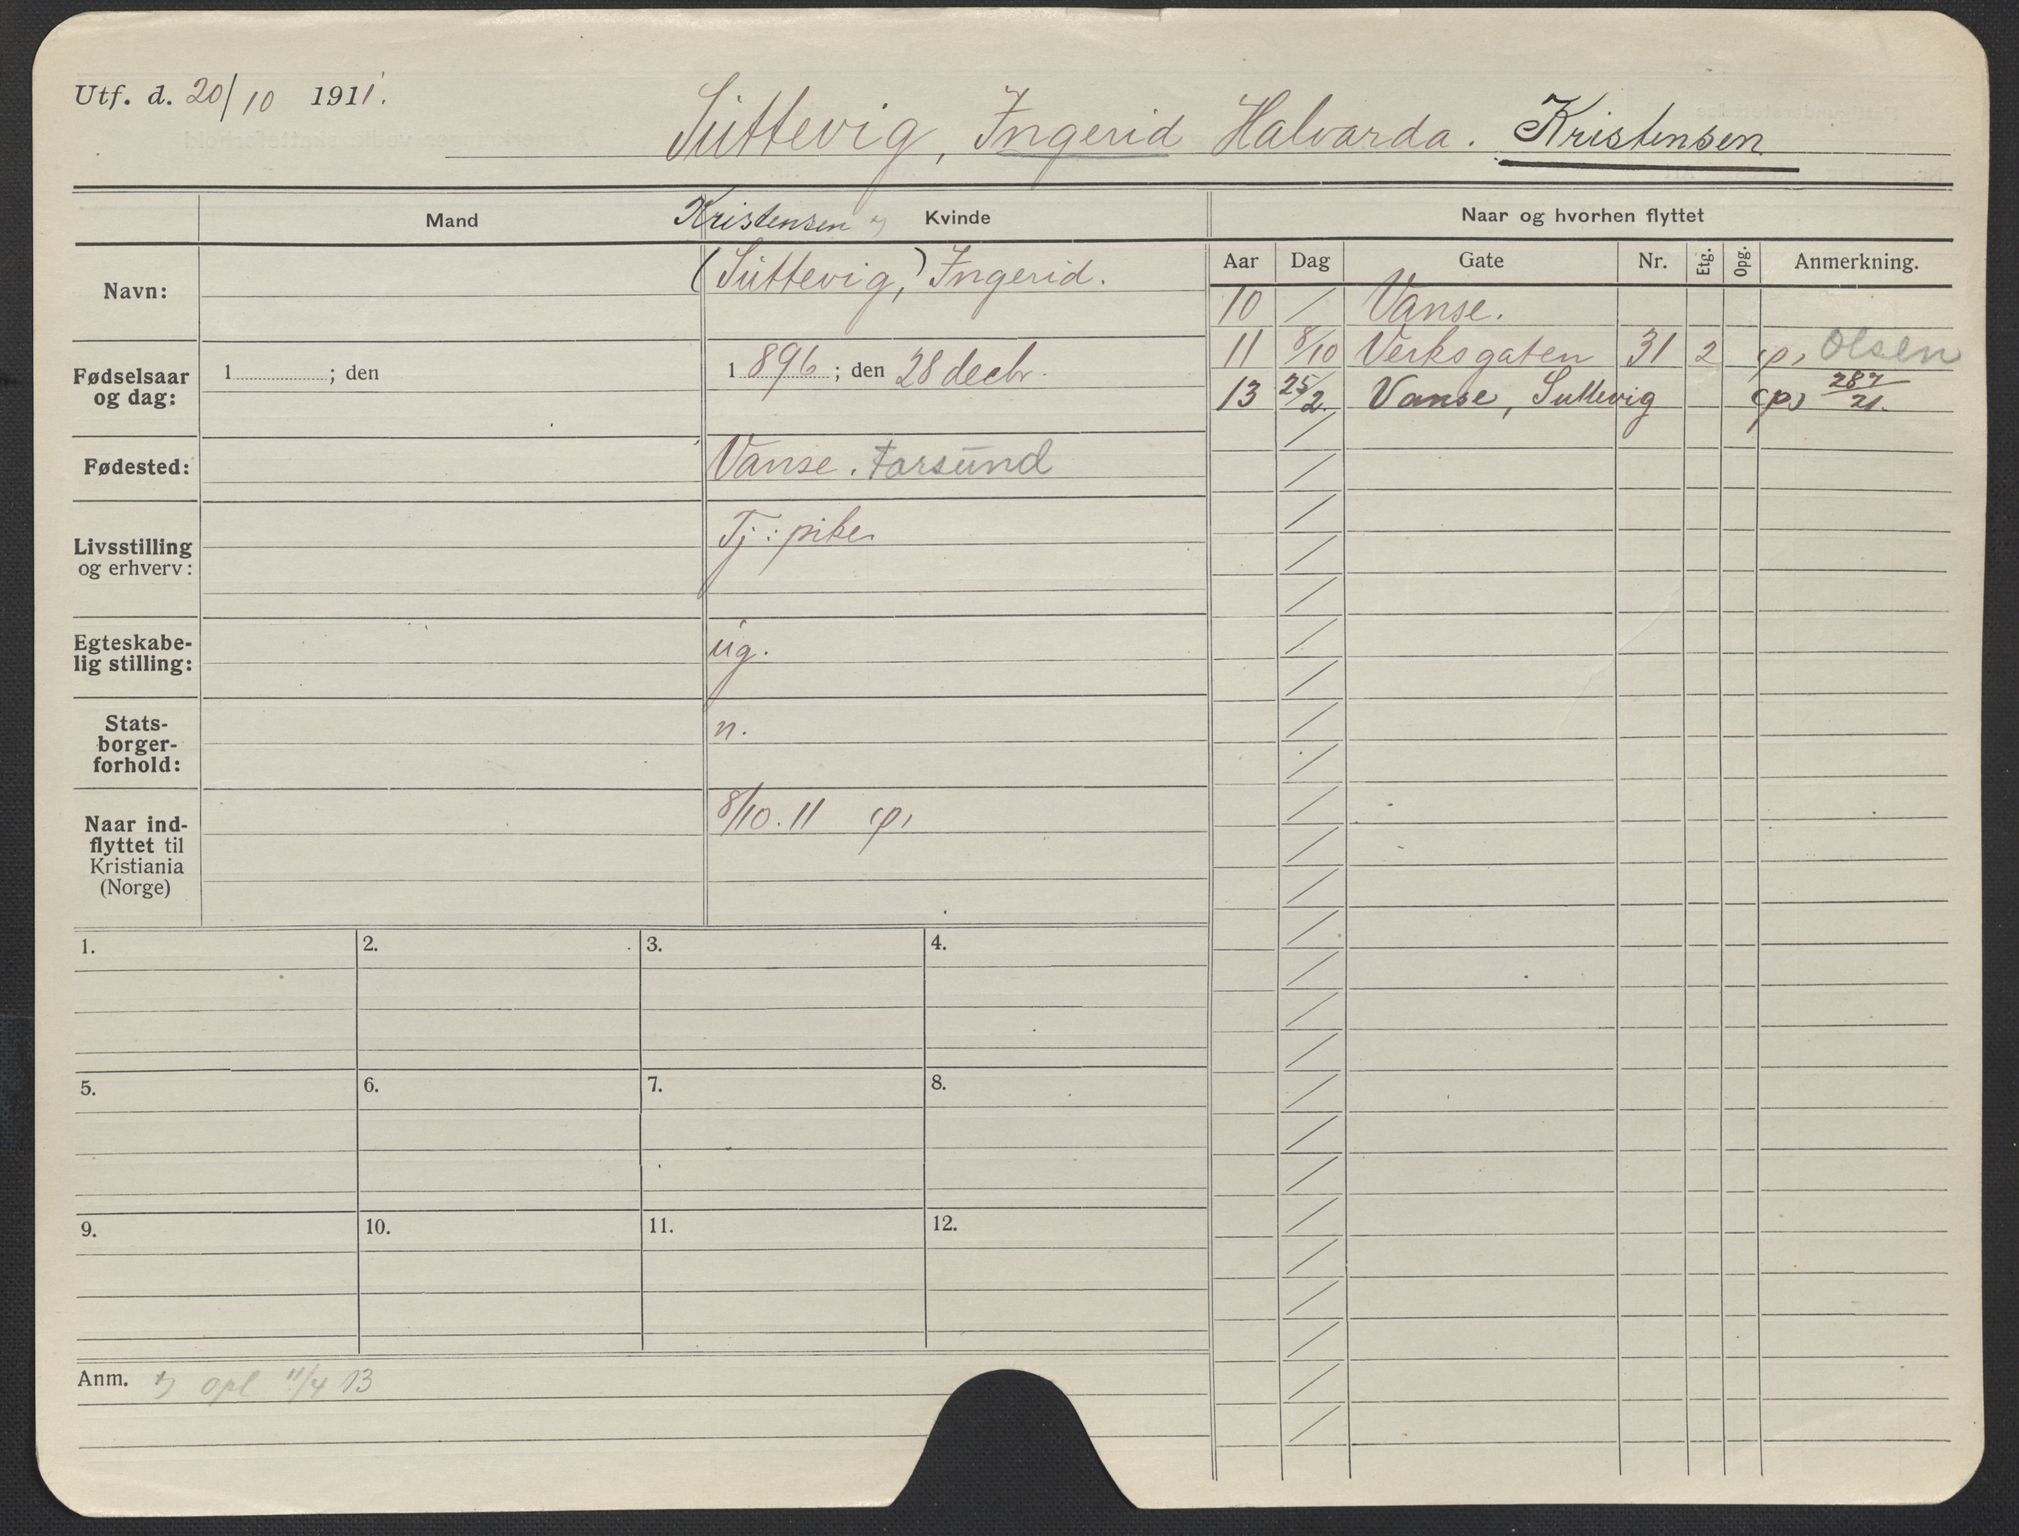 Utf. d. 20/10 1911.
Süttevig, Ingerid Halvarda. Kristensen
Mand
Kristensen *) Kvinde
Naar og hvorhen flyttet
Navn:
(Süttevig,) Ingerid.
Aar Dag Gate Nr. Etg. Opg. Anmerkning.
10 / Vanse.
11 8/10 Verksgaten 31 2 (p) Olsen
13 25/2. Vanse, Suttevig (p) 287/21.
Fødselsaar
og dag:
1 ; den
1896 ; den 28 decbr.
Fødested:
Vanse. Farsund
Livsstilling
og erhverv:
Tj: pike
Egteskabe-
lig stilling:
ug.
Stats-
borger-
forhold:
n.
Naar ind-
flyttet til
Kristiania
(Norge)
8/10. 11 (p)
1. 2. 3. 4.
5. 6. 7. 8.
9. 10. 11. 12.
Anm. *) opl 11/4 13